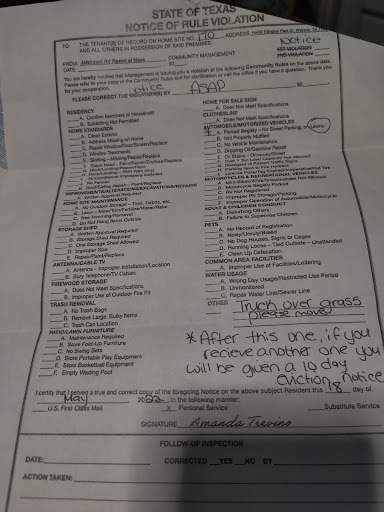 STATE OF TEXAS
NOTICE OF RULE VIOLATION
TO: THE TENANT(S) OF RECORD ON HOME SITE NO. 170 ADDRESS
AND ALL OTHERS IN POSSESSION OF SAID PREMISES. Notice
FROM COMMUNITY MANAGEMENT 1ST VIOLATION
DATE: 20 2ND VIOLATION
You are hereby notified that Management is issuing you a violation of the following Community Rules on the above date.
Please refer to your copy of the Community Rules and for clarification or call the office if you have a question. Thank you
for your cooperation.
PLEASE CORRECT THIS VIOLATION BY ASAP
notice
RESIDENCY
A. Confirm Members of Household
B. Subletting Not Permitted
HOME STANDARDS
A. Clean Exterior
B. Address Missing on Home
C. Repair Window/Door/Screen/Replace
D. Window Treatments
E. Skirting - Missing/Repair/Replace
IMPROVEMENTS/ALTERATIONS/EXCAVATIONS/REPAIRS
A. Written Approval Required
HOME SITE MAINTENANCE
A. No Outdoor Storage - Tires, Debris, etc.
C. Tree Trimming/Removal
D. Do Not Hang Items Outside
STORAGE SHED
A. Written Approval Required
B. Storage Shed Required
C. One Storage Shed Allowed
D. Improper Size
E. Repair/Paint/Replace
ANTENNA/CABLE TV
A. Antenna - Improper Installation/Location
B. Bury Telephone/TV Cables
FIREWOOD STORAGE
A. Does Not Meet Specifications
B. Improper Use of Outdoor Fire Pit
TRASH REMOVAL
A. No Trash Bags
B. Remove Large, Bulky Items
C. Trash Can Location
PATIO/LAWN FURNITURE
A. Maintenance Required
B. Store Fold-Up Furniture
C. No Swing Sets
D. Store Portable Play Equipment
E. Store Basketball Equipment
F. Empty Wading Pool
HOME FOR SALE SIGN
A. Does Not Meet Specifications
CLOTHESLINE
A. Does Not Meet Specifications
AUTOMOBILES/MOTORIZED VEHICLES
A. Parked Illegally - No Street Parking, or Lawns
B. Not Properly Muffled
C. No Vehicle Maintenance
D. Dripping Oil/Gasoline Repair
E. Oil Stains - Driveway/Street
MOTORCYCLES & RECREATIONAL VEHICLES
B. Motorcycle Illegally Parked
C. RV Not Registered
D. Improper RV Storage/Parking
E. Improper Operation of Automobile/Motorcycle
ADULT & CHILDREN CONDUCT
A. Disturbing Others
B. Failure to Supervise Children
PETS
A. No Record of Registration
B. Noisy/Unruly/Breed
C. No Dog Houses, Signs or Cages
D. Running Loose - Tied Outside - Unattended
E. Clean Up Defecation
COMMON AREA FACILITIES
A. Improper Use of Facilities/Loitering
WATER USAGE
A. Wrong Day Usage/Restricted Use Period
B. Unmonitored
C. Repair Water Line/Sewer Line
OTHER Truck over grass
please move
* After this one, if you
recieve another one you
will be given a 10 day
eviction notice
I certify that I served a true and correct copy of the foregoing Notice on the above subject Resident this 18 day of
May 2022, in the following manner:
U.S. First Class Mail X Personal Service Substitute Service
SIGNATURE Amanda Trevino
FOLLOW-UP INSPECTION
DATE: CORRECTED YES NO BY
ACTION TAKEN: